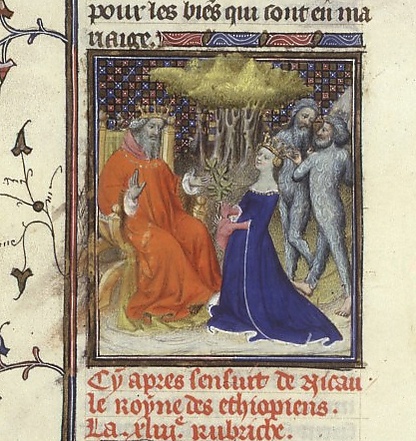 pour les biẽs qui sont en ma
riaige.
Cy apres sensuit de Nicau
le royne des ethiopiens.
La .xliii.e rubriche.